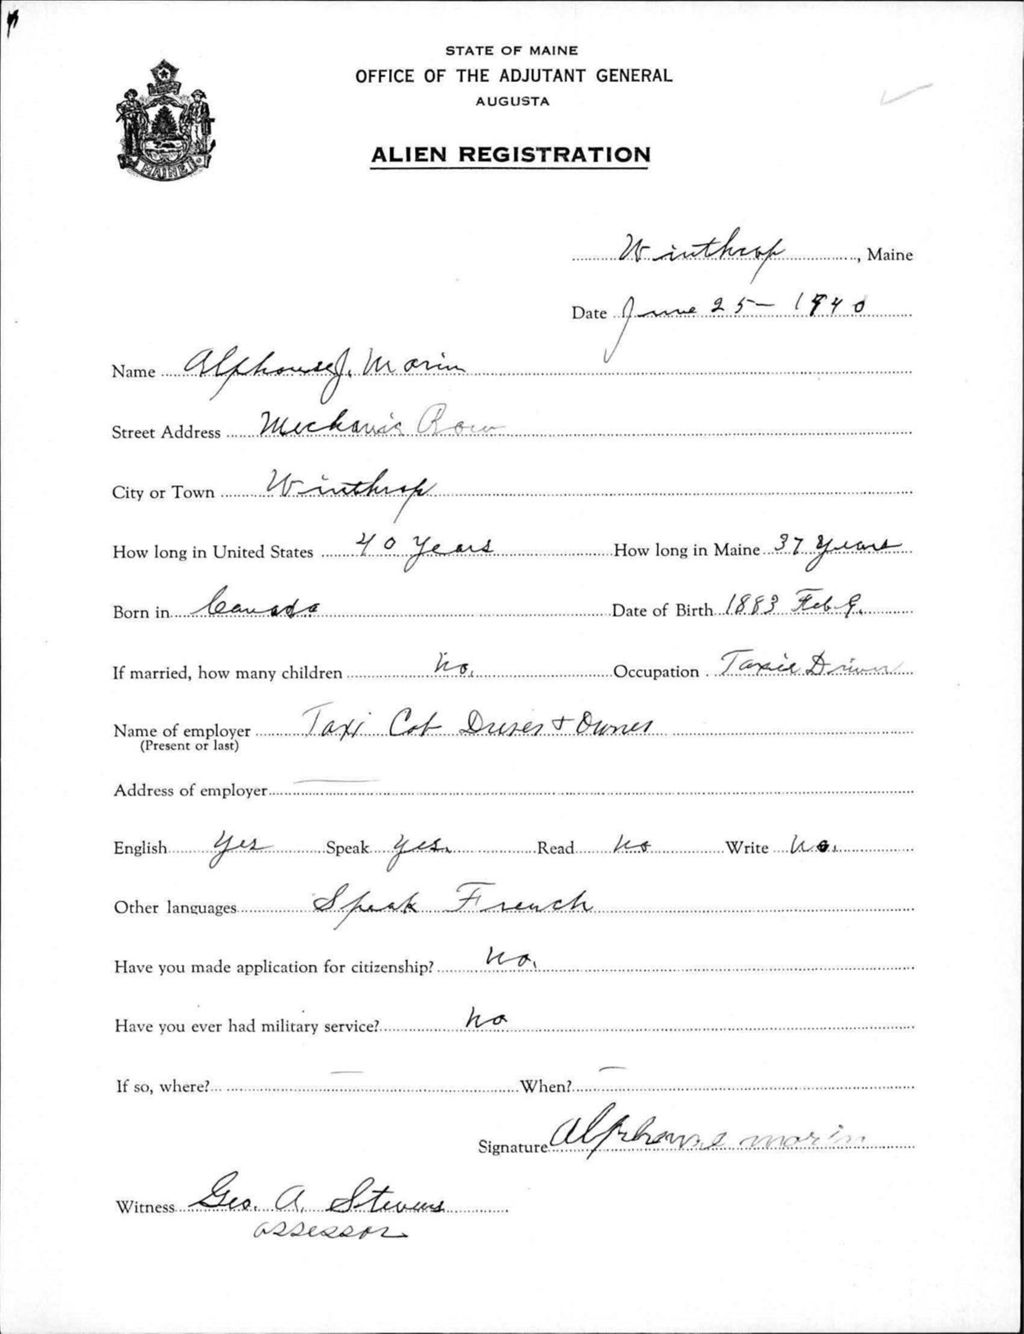 STATE OF MAINE
OFFICE OF THE ADJUTANT GENERAL
AUGUSTA
ALIEN REGISTRATION
MAINE
Winthrop, Maine
Date June 25 — 1940
Name Alphonse J. Morin
Street Address Mechanic Row
City or Town Winthrop
How long in United States 40 Years How long in Maine 37 Years
Born in Canada Date of Birth 1883 Feb 9.
If married, how many children No. Occupation Taxie Driver
Name of employer Taxi Cab Driver + Owner
(Present or last)
Address of employer —
English Yes Speak Yes. Read No Write No.
Other languages Speak French
Have you made application for citizenship? No.
Have you ever had military service? No
If so, where? — When? —
Signature Alphonse Morin
Witness Geo. A. Stevens
assessor